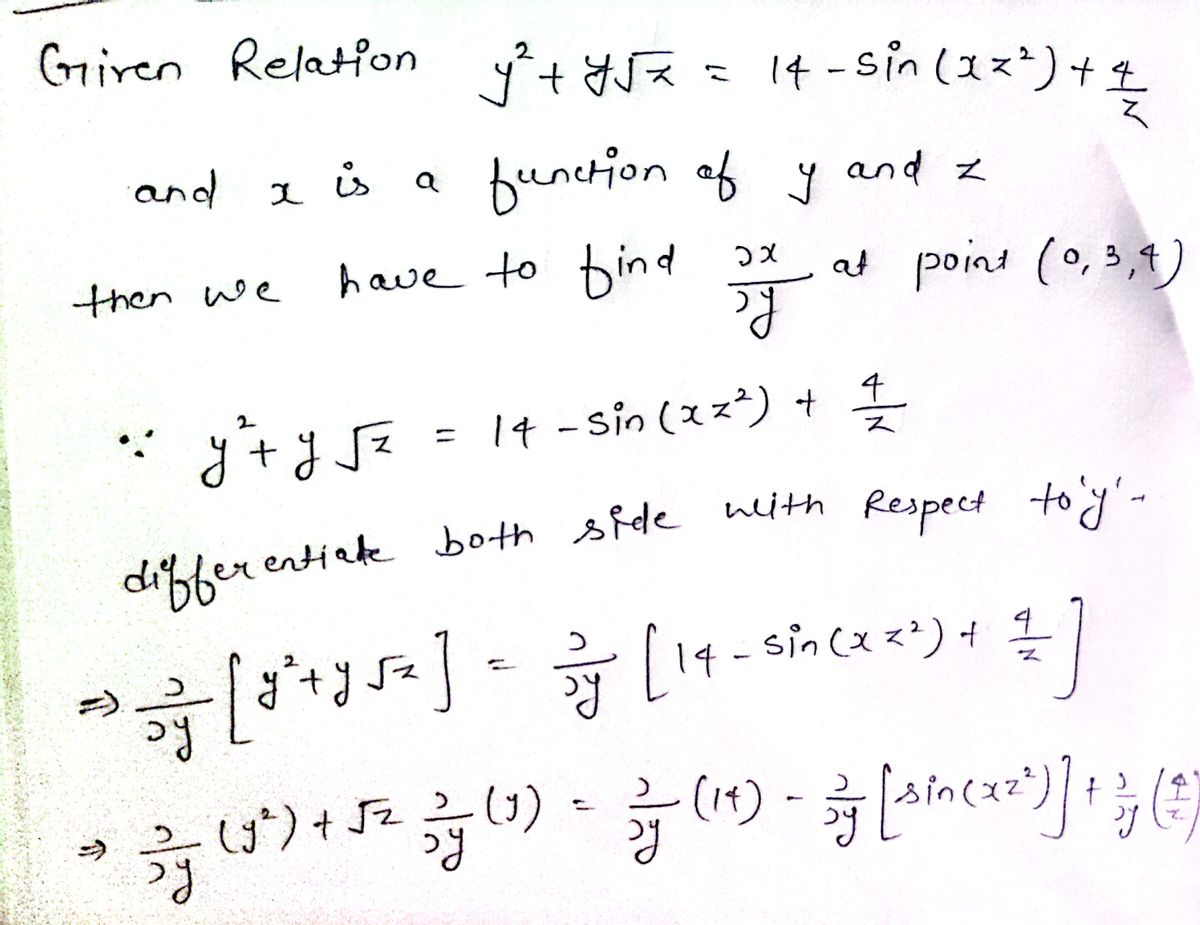 Given Relation y² + y√z = 14 - sin(xz²) + 4/z
and x is a function of y and z
then we have to find ∂x/∂y at point (0, 3, 4)
∵ y² + y√z = 14 - sin(xz²) + 4/z
differentiate both side with Respect to 'y' -
⇒ ∂/∂y [y² + y√z] = ∂/∂y [14 - sin(xz²) + 4/z]
⇒ ∂/∂y (y²) + √z ∂/∂y (y) = ∂/∂y (14) - ∂/∂y [sin(xz²)] + ∂/∂y (4/z)